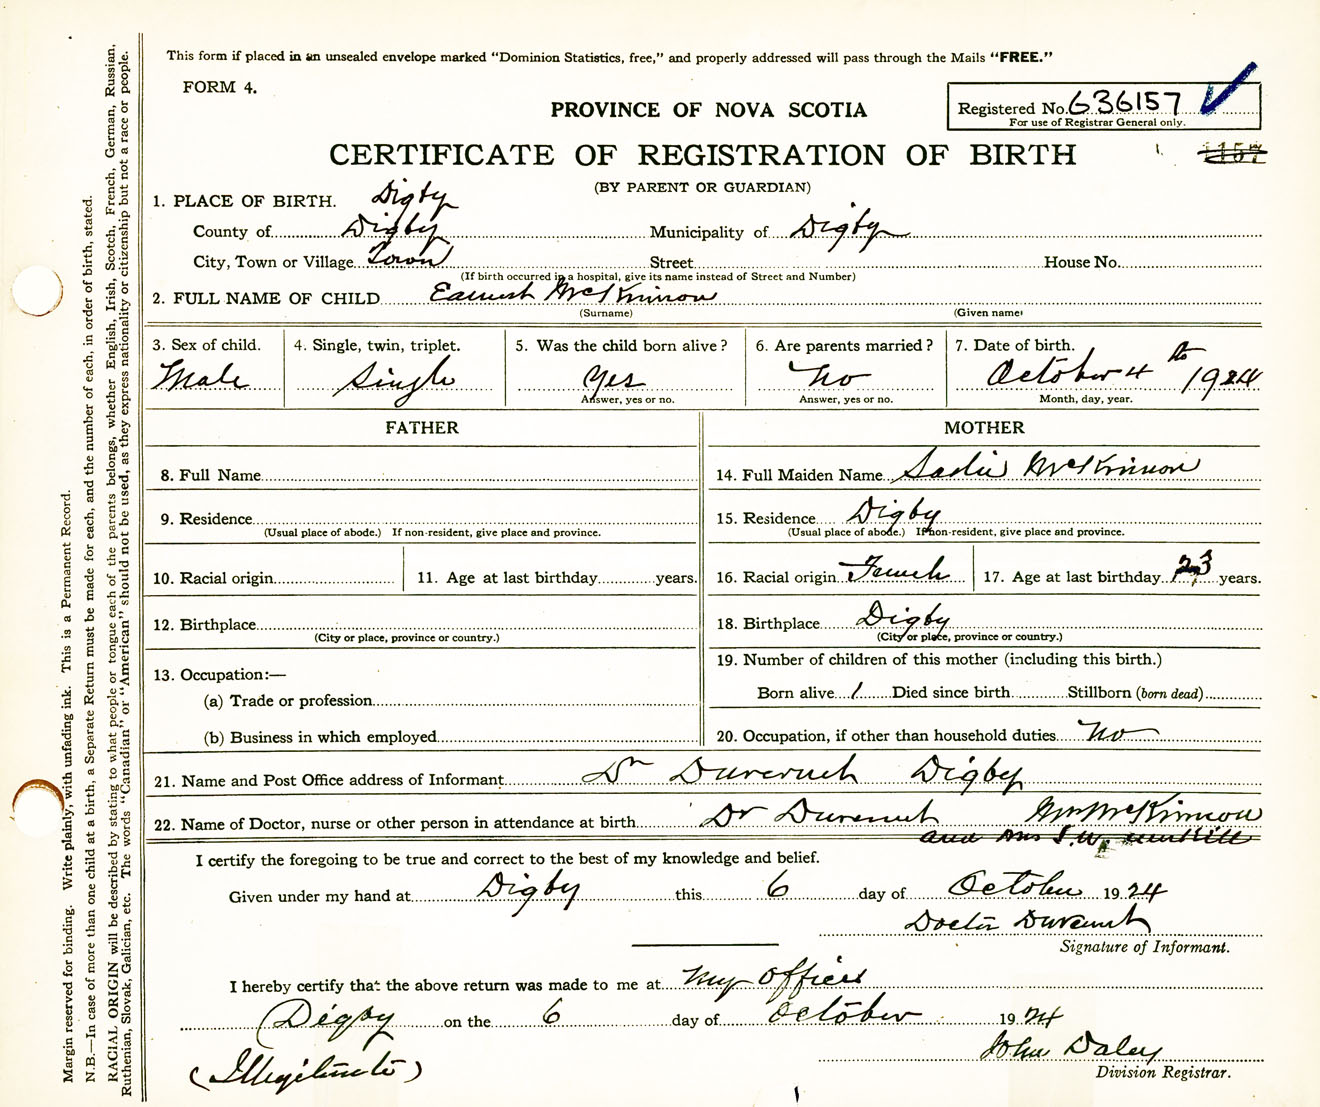 This form if placed in an unsealed envelope marked "Dominion Statistics, free," and properly addressed will pass through the Mails "FREE."
FORM 4.
Registered No. 636157
For use of Registrar General only.
PROVINCE OF NOVA SCOTIA
1157
CERTIFICATE OF REGISTRATION OF BIRTH
(BY PARENT OR GUARDIAN)
1. PLACE OF BIRTH. Digby
County of Digby Municipality of Digby
City, Town or Village Town Street House No.
(If birth occurred in a hospital, give its name instead of Street and Number)
2. FULL NAME OF CHILD Earnest McKinnon
(Surname) (Given name)
3. Sex of child. 4. Single, twin, triplet. 5. Was the child born alive? 6. Are parents married? 7. Date of birth.
Male Single Yes No October 4th 1924
Answer, yes or no. Answer, yes or no. Month, day, year.
FATHER MOTHER
8. Full Name 14. Full Maiden Name Sadie McKinnon
9. Residence 15. Residence Digby
(Usual place of abode.) If non-resident, give place and province. (Usual place of abode.) If non-resident, give place and province.
10. Racial origin 11. Age at last birthday years. 16. Racial origin French 17. Age at last birthday 23 years.
12. Birthplace 18. Birthplace Digby
(City or place, province or country.) (City or place, province or country.)
13. Occupation:— 19. Number of children of this mother (including this birth.)
(a) Trade or profession Born alive 1 Died since birth Stillborn (born dead)
(b) Business in which employed 20. Occupation, if other than household duties No
21. Name and Post Office address of Informant Dr Digby
22. Name of Doctor, nurse or other person in attendance at birth Dr McKinnon
and Mrs
I certify the foregoing to be true and correct to the best of my knowledge and belief.
Given under my hand at Digby this 6 day of October 1924
Doctor
Signature of Informant.
I hereby certify that the above return was made to me at My Office
Digby on the 6 day of October 1924
John Daley
Division Registrar.
(Illegitimate)
Margin reserved for binding. Write plainly, with unfading ink. This is a Permanent Record.
N.B.—In case of more than one child at a birth, a Separate Return must be made for each, and the number of each, in order of birth, stated.
RACIAL ORIGIN will be described by stating to what people or tongue each of the parents belongs, whether English, Irish, Scotch, French, German, Russian,
Ruthenian, Slovak, Galician, etc. The words "Canadian" or "American" should not be used, as they express nationality or citizenship but not a race or people.